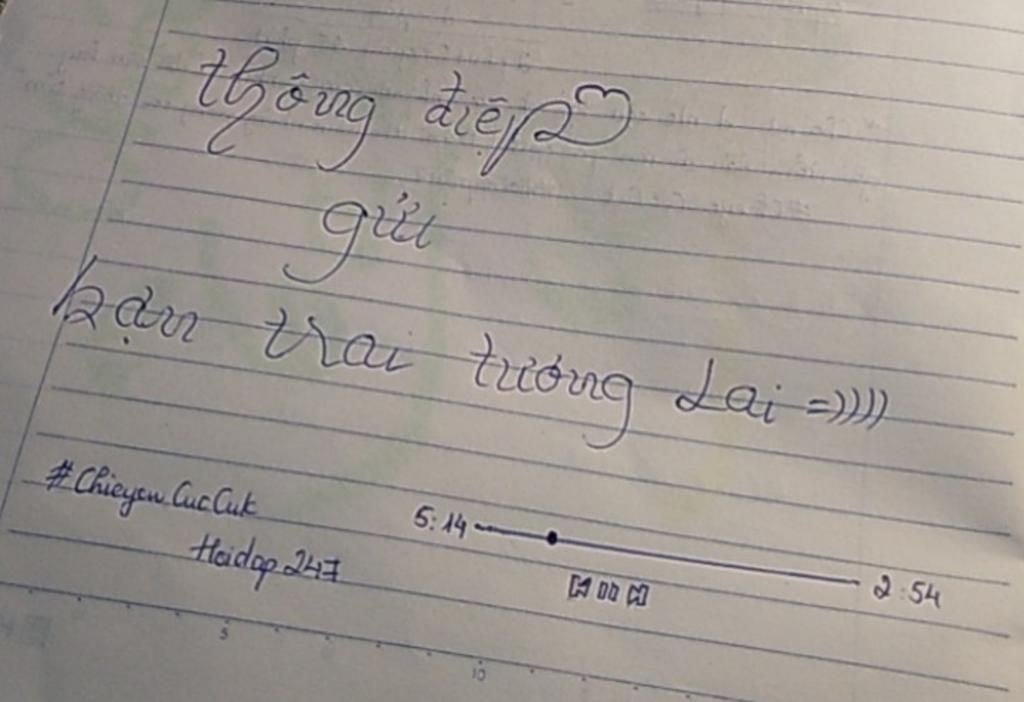 thông điệp
gửi
bạn trai tương lai =))))
#Chieyen.CucCuk
Hoidap247
5:14
2:54
5
10